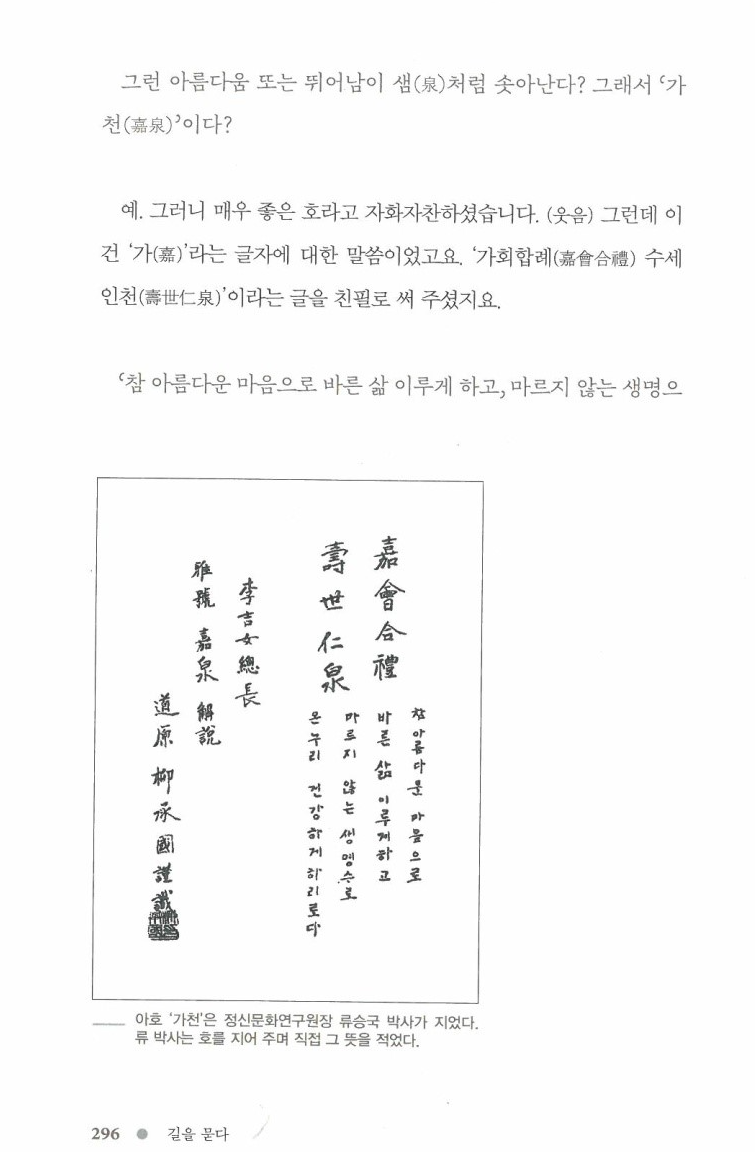 그런 아름다움 또는 뛰어남이 샘(泉)처럼 솟아난다? 그래서 ‘가
천(嘉泉)’이다?
예. 그러니 매우 좋은 호라고 자화자찬하셨습니다. (웃음) 그런데 이
건 ‘가(嘉)’라는 글자에 대한 말씀이었고요. ‘가회합례(嘉會合禮) 수세
인천(壽世仁泉)’이라는 글을 친필로 써 주셨지요.
‘참 아름다운 마음으로 바른 삶 이루게 하고, 마르지 않는 생명으
嘉會合禮
壽世仁泉
참 아름다운 마음으로
바른 삶 이루게 하고
마르지 않는 생명수로
온 누리 건강하게 하리로다
李吉女總長
雅號 嘉泉 解說
道原 柳承國 謹識
아호 ‘가천’은 정신문화연구원장 류승국 박사가 지었다.
류 박사는 호를 지어 주며 직접 그 뜻을 적었다.
296 ● 길을 묻다